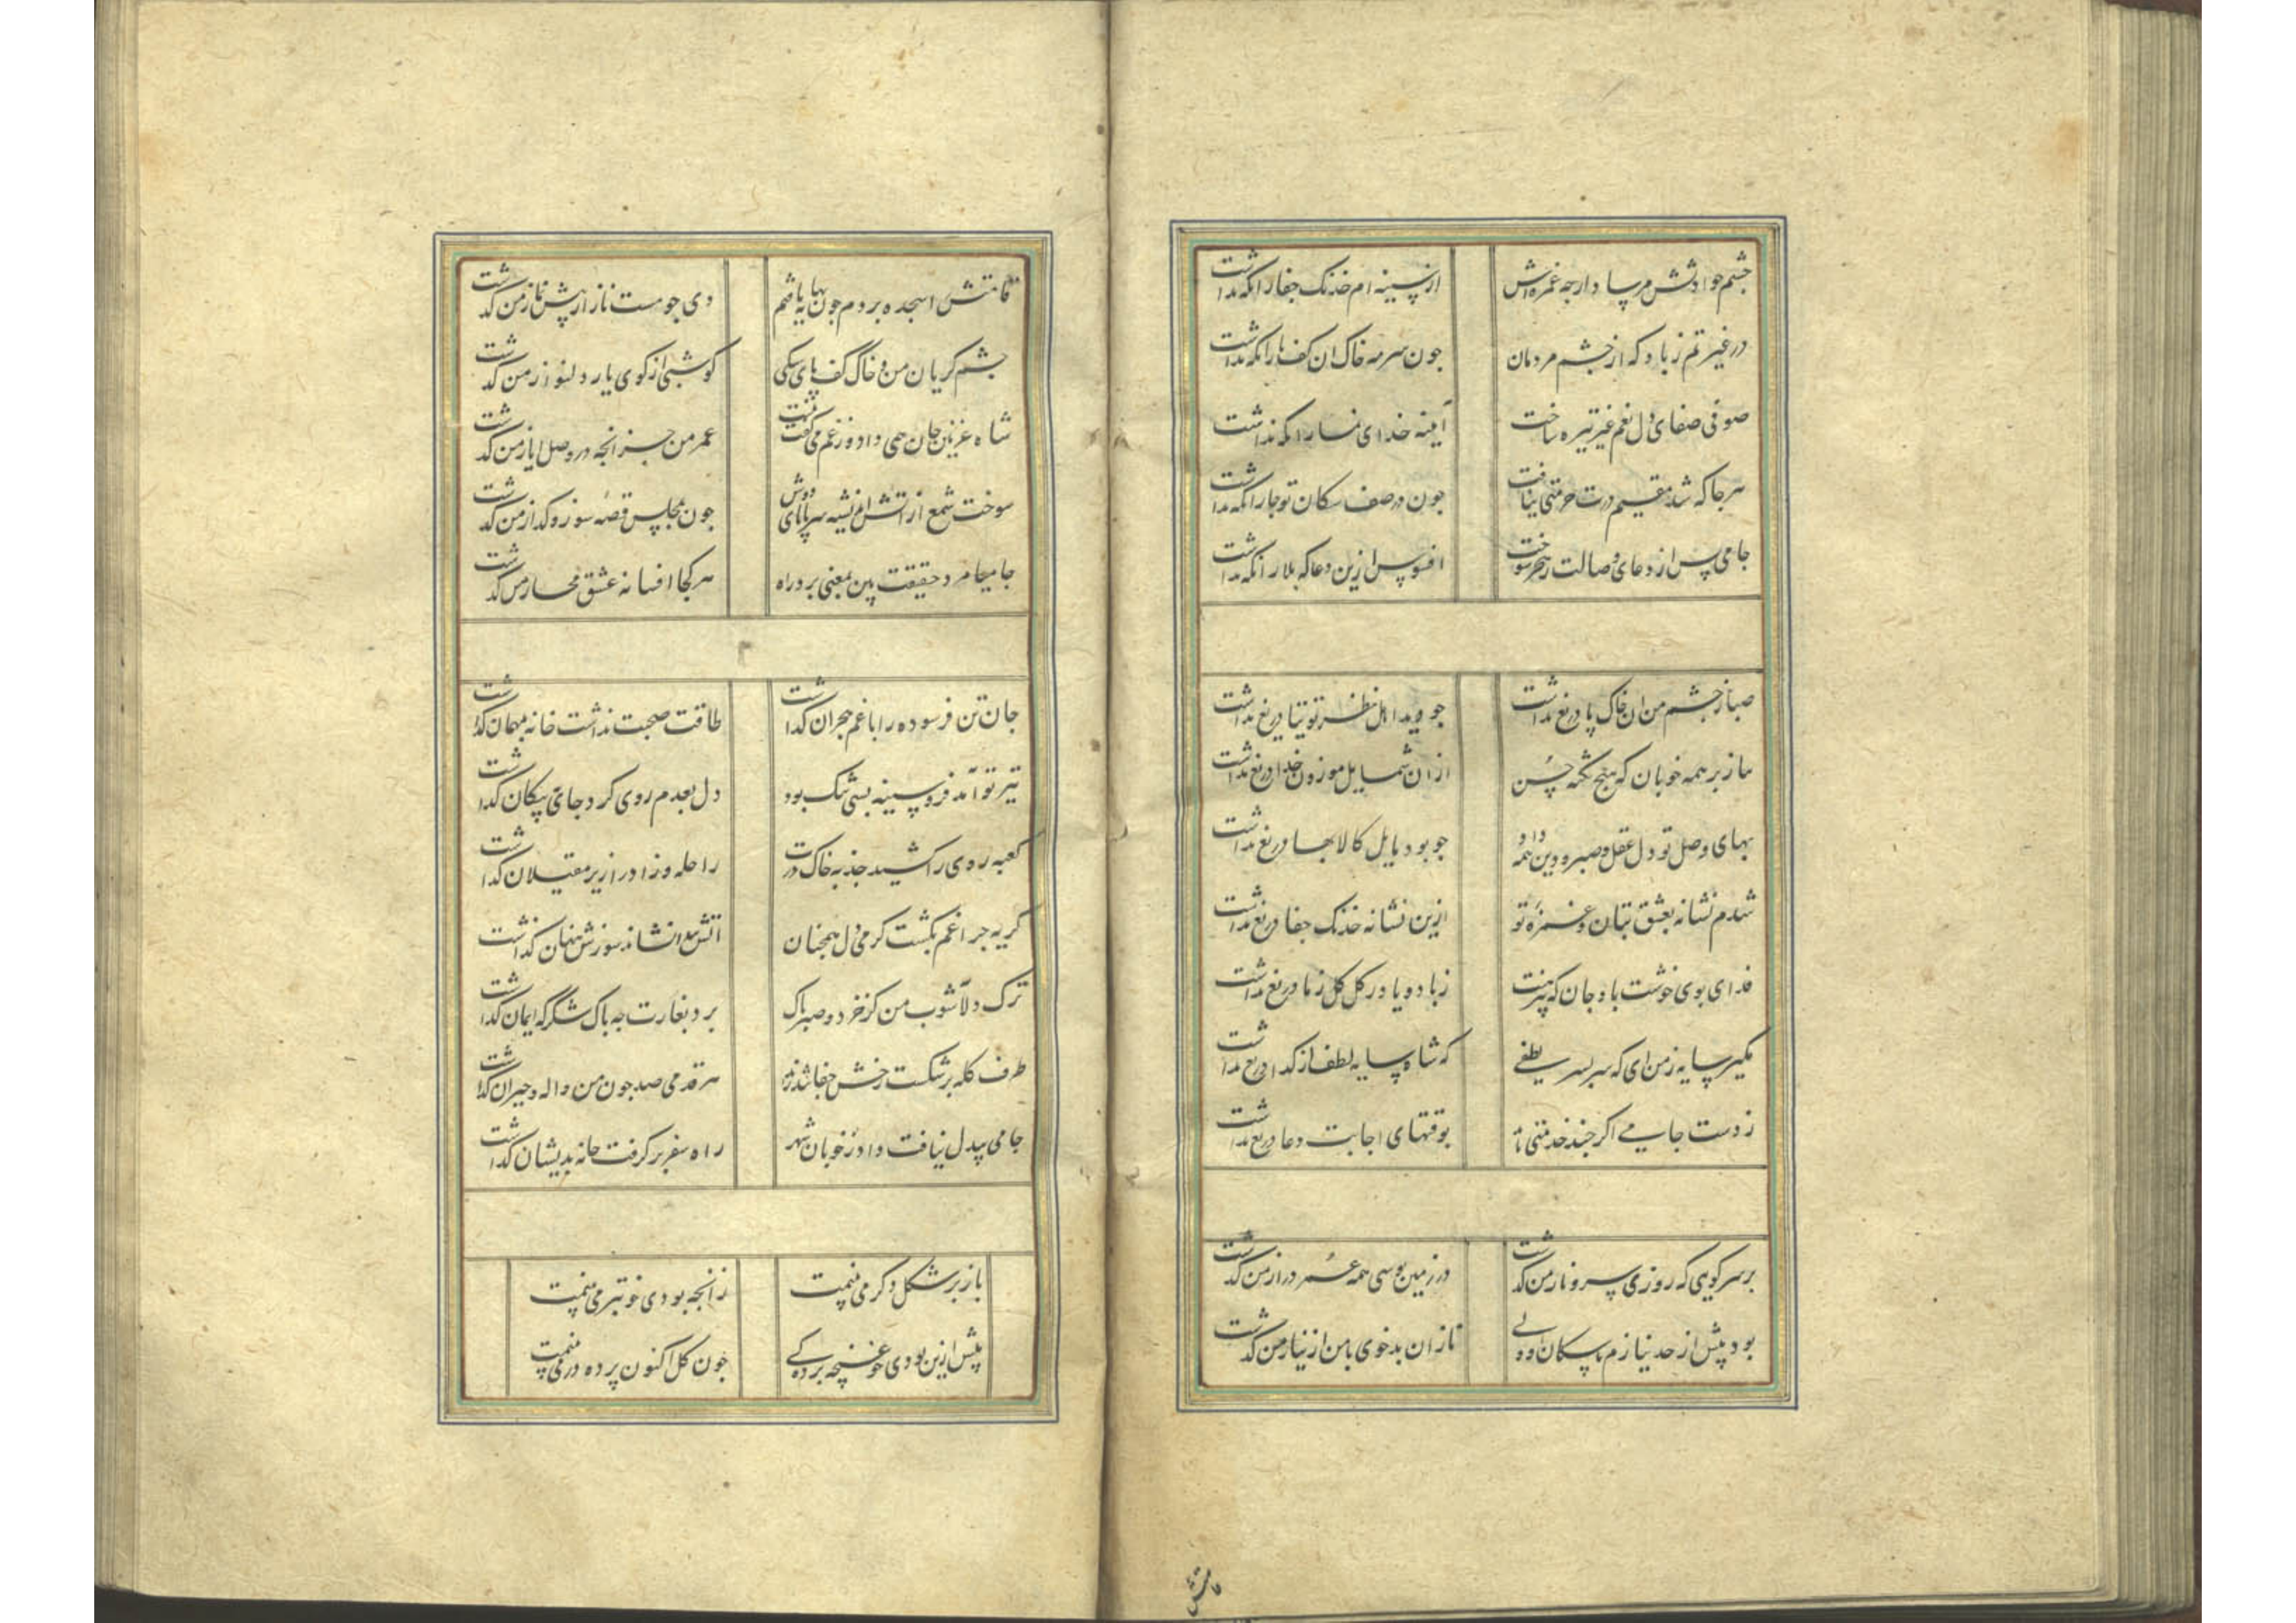 چشم حوادثش مرسادار چه غمزه اش از سینه ام خدنک جفا را نکه نداشت
در غیرتم ز باد که از چشم مردمان چون سرمه خاک ان کف پا را نکه نداشت
صوفی صفای دل بغم غیر تیره ساخت آینه خدای نما را نکه نداشت
هرجا که شد مقیم درت حرمتی نیافت چون در صف سکان تو جا را نکه نداشت
جامی پس از دعای وصالت ز هجر سوخت افسوس ازین دعا که بلا را نکه نداشت
صبا ز چشم من ان خاک پا دریغ نداشت چو دید اهل نظر توتیا دریغ نداشت
بناز بر همه خوبان که هیچ نکته حسن از ان شمایل موزون خدا دریغ نداشت
بهای وصل تو دل عقل و صبر و دین همه داد چو بود مایل کالا بها دریغ نداشت
شدم نشانه بعشق بتان و غمزه تو ازین نشانه خدنک جفا دریغ نداشت
فدای بوی خوشت باد جان که پیرهنت ز باد و باد ز کل کل ز ما دریغ نداشت
مکیر سایه ز من ای که سر بسر لطفی که شاه سایه لطف از کدا دریغ نداشت
ز دست جامی اکر چند خدمتی نامد بوقتهای اجابت دعا دریغ نداشت
بر سر کویی که روزی سرو ناز من کذشت در زمین بوسی همه عمر دراز من کذشت
بود پیش از حد نیازم با سکان او ولی ناز ان بدخوی با من از نیاز من کذشت
قامتش
قامتش را سجده بردم چون بپایان شد دی چو مست ناز از پیش نماز من کذشت
چشم کریان من و خاک کف پای سکی کو شبی از کوی یار دلنواز من کذشت
شاه غزنین جان همی داد و ز غم می کفت عمر من جز انچه در وصل ایاز من کذشت
سوخت شمع از اتش اندیشه سر تا پای دوش چون بمجلس قصه سوز و کداز من کذشت
جامیا مرد حقیقت بین بمعنی برد راه هر کجا افسانه عشق مجاز من کذشت
جان تن فرسوده را با غم هجران کذاشت طاقت صحبت نداشت خانه بمهمان کذاشت
تیر تو آمد فرو سینه بسی تنک بود دل بعدم روی کرد جای بپیکان کذاشت
کعبه روی را کشید جذبه خاک درت راحله و زاد را زیر مغیلان کذاشت
کریه چراغم بکشت کرمی دل همچنان اتش پیدا نشاند سوزش پنهان کذاشت
ترک دلآشوب من کز خرد و صبر پاک برد بغارت چه باک شکر که ایمان کذاشت
طرف کله بر شکست رخش جفا تند راند هر قدمی صد چون من واله و حیران کذاشت
جامی بیدل نیافت داد ز خوبان شهر راه سفر بر کرفت خانه بدیشان کذاشت
باز بر شکل دکر می بینمت زانچه بودی خوبتر می بینمت
پیش ازین بودی چو غنچه پردکی چون کل اکنون پرده در می بینمت